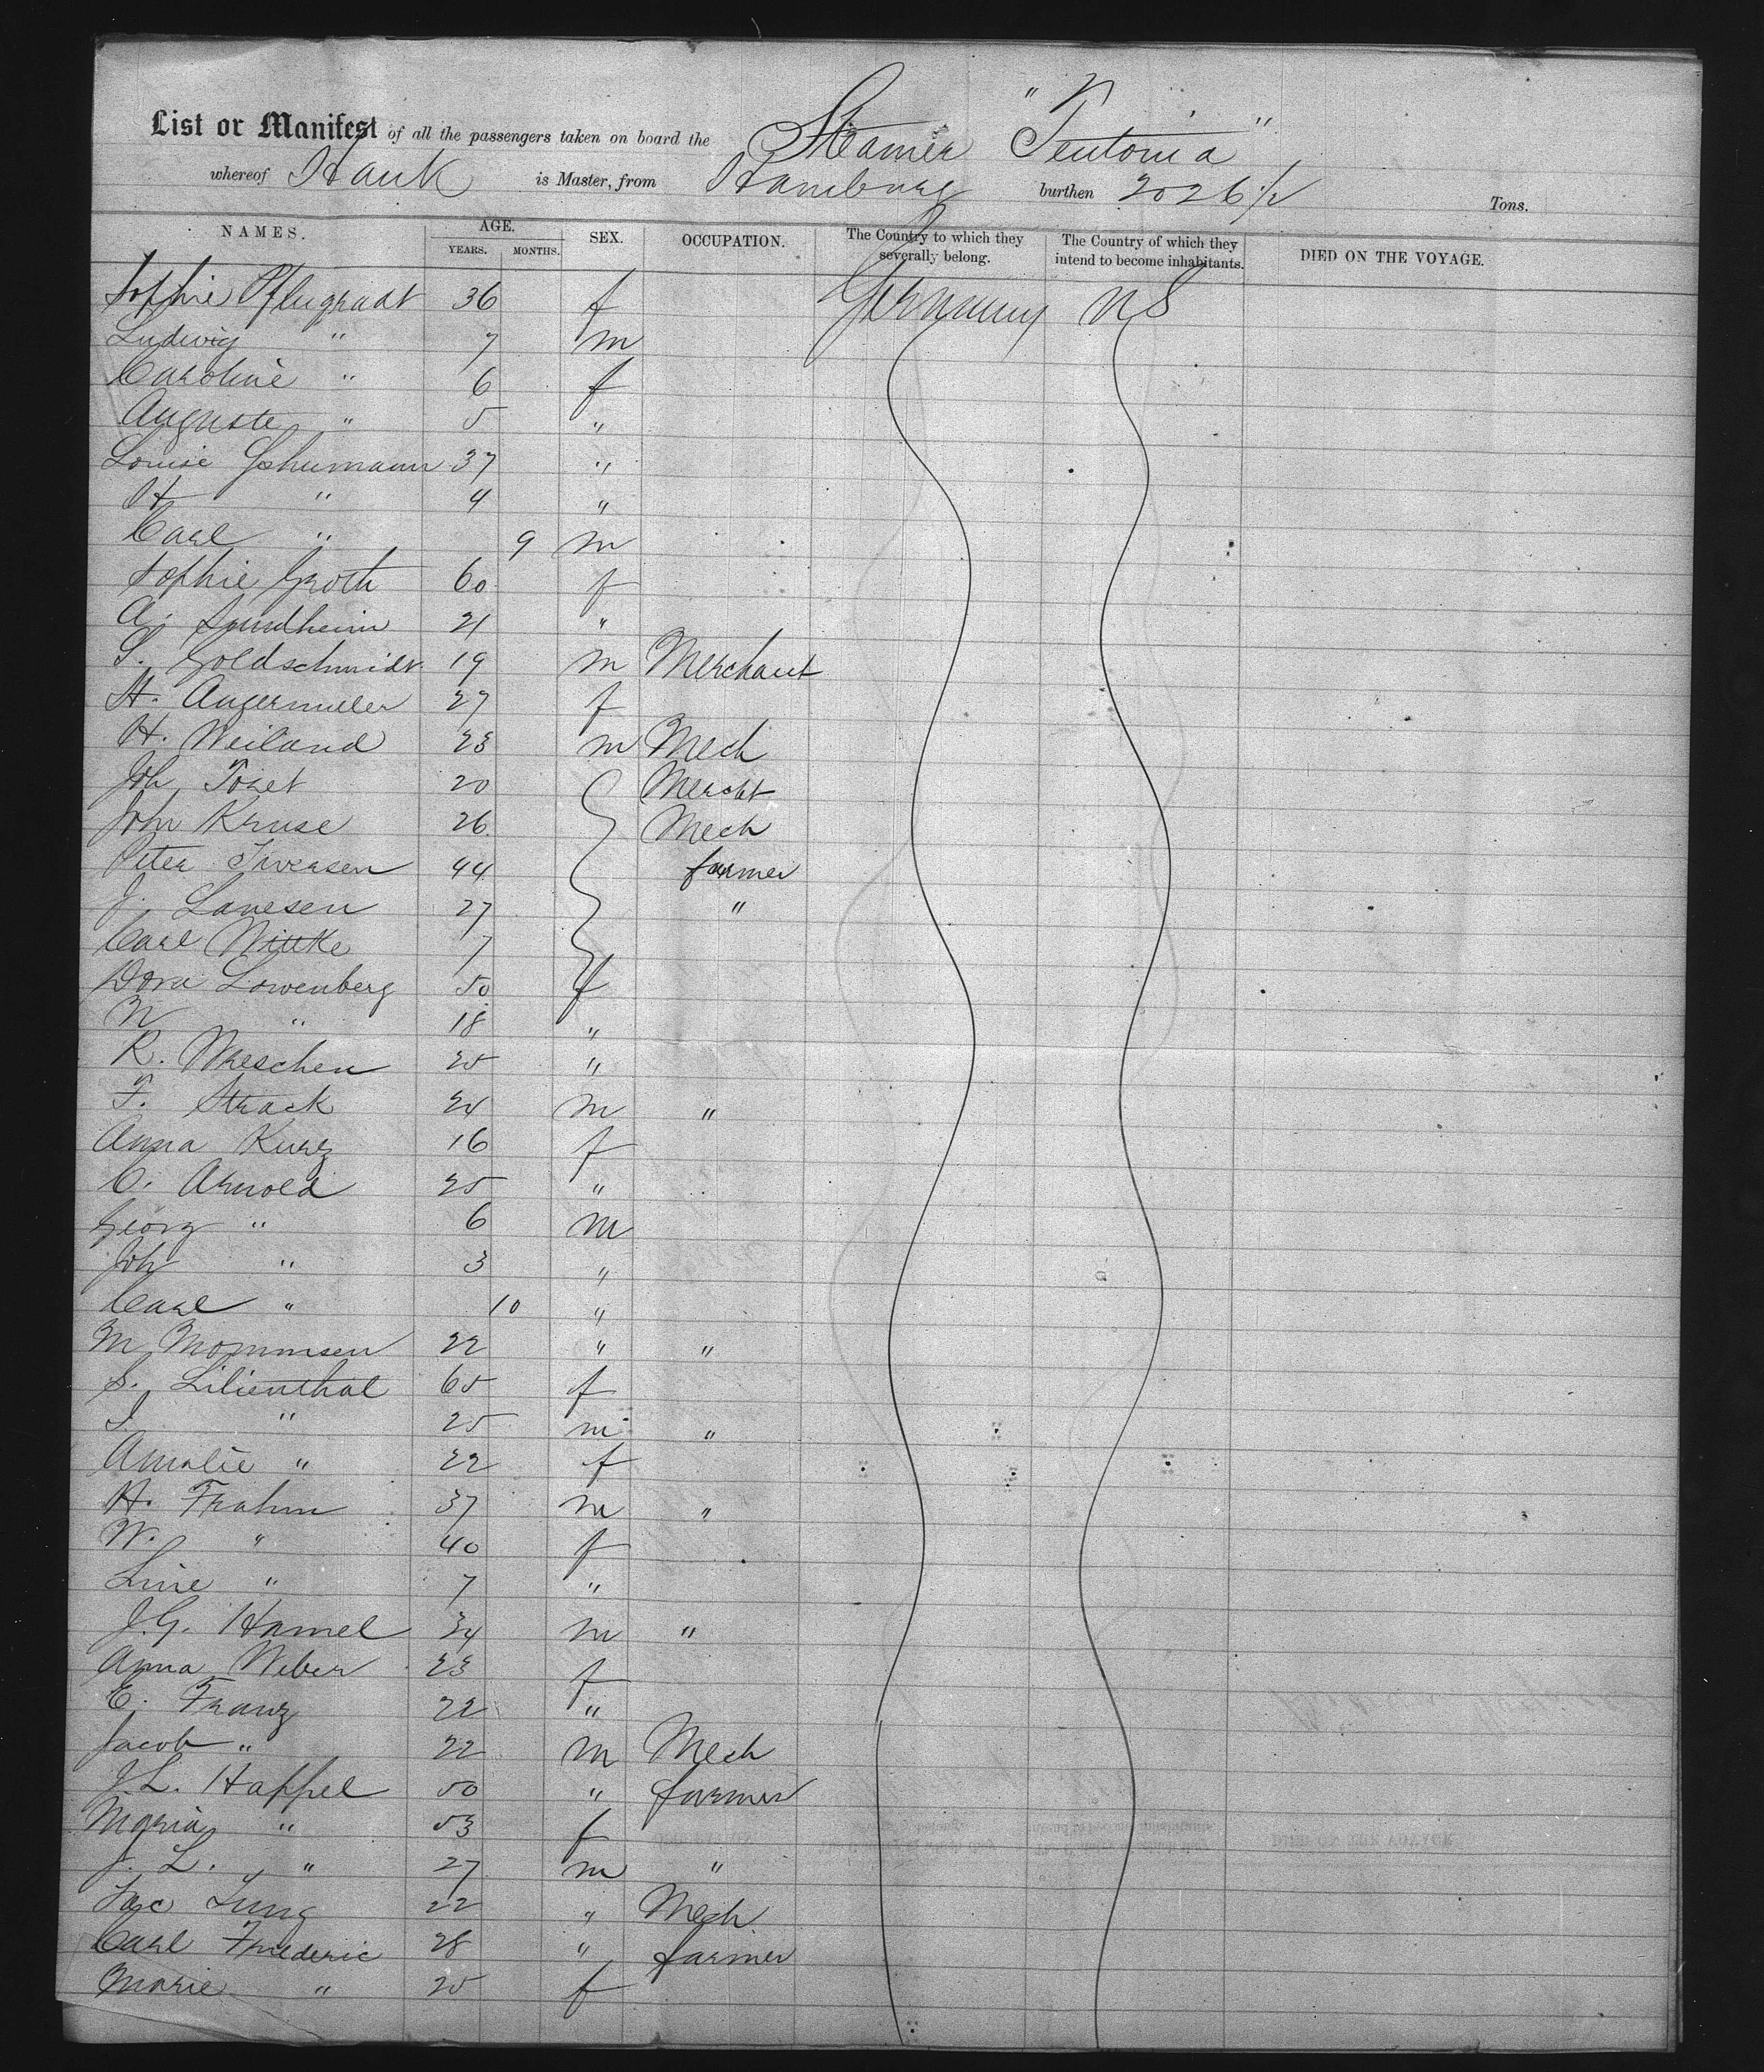 List or Manifest of all the passengers taken on board the Steamer "Teutonia"
whereof Hauk is Master, from Hamburg burthen 2026 1/2 Tons.
NAMES. AGE. YEARS. MONTHS. SEX. OCCUPATION. The Country to which they severally belong. The Country of which they intend to become inhabitants. DIED ON THE VOYAGE.
Sophie Pflugradt 36 f Germany US
Ludwig " 7 m
Caroline " 6 f
Auguste " 5 "
Louise Schumann 37 "
H " 4 "
Carl " 9 m
Sophie Groth 60 f
A. Sundheim 21 "
S. Goldschmidt 19 m Merchant
H. Angermuller 27 f
H. Weiland 23 m Mech
Joh Toset 20 Mercht
John Kruse 26 Mech
Peter Iwersen 44 farmer
J. Lawesen 27 "
Carl Wittke 7
Dora Lowenberg 50 f
N " 18 "
R. Wreschen 25 "
F. Strack 24 m "
Anna Kurz 16 f
C. Arnold 25 "
Georg " 6 m
Joh " 3 "
Carl " 10 "
M Mommsen 22 " "
S. Lilienthal 65 f
I. " 25 m "
Amalie " 22 f
H. Frahm 37 m "
W. " 40 f
Line " 7 "
J.G. Hamel 34 m "
Anna Weber 23 f
E. Franz 22 "
Jacob " 22 m Mech
J.L. Happel 50 " farmer
Maria " 53 f
J. L. " 27 m "
Jac Lung 22 " Mech
Carl Frederic 28 " farmer
Marie " 25 f